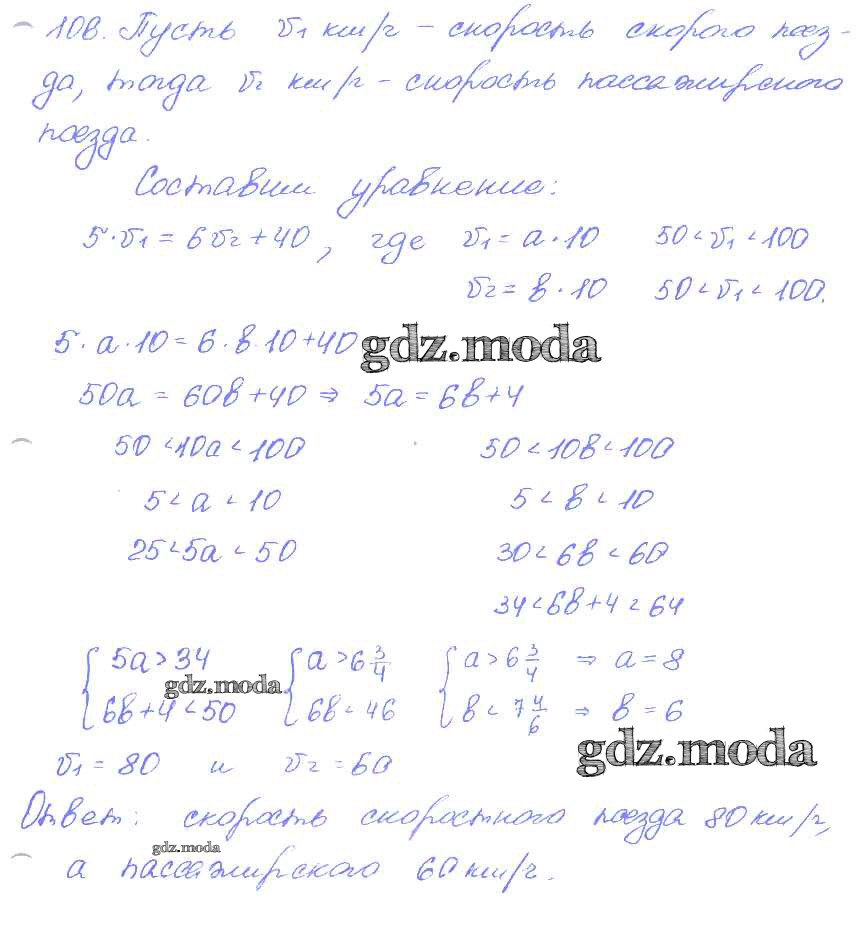 10в. Пусть v₁ км/ч – скорость скорого поез-
да, тогда v₂ км/ч – скорость пассажирского
поезда.
Составим уравнение:
5·v₁ = 6v₂ + 40, где v₁ = a·10 50 < v₁ < 100
v₂ = в·10 50 < v₁ < 100.
5·a·10 = 6·в·10 + 40
gdz.moda
50a = 60в + 40 ⇒ 5a = 6в + 4
50 < 10a < 100 50 < 10в < 100
5 < a < 10 5 < в < 10
25 < 5a < 50 30 < 6в < 60
34 < 6в + 4 < 64
{ 5a > 34 { a > 6 3/4 { a > 6 3/4 ⇒ a = 8
gdz.moda
6в + 4 < 50 6в < 46 в < 7 4/6 ⇒ в = 6
gdz.moda
v₁ = 80 и v₂ = 60
Ответ: скорость скоростного поезда 80 км/ч,
gdz.moda
а пассажирского 60 км/ч.